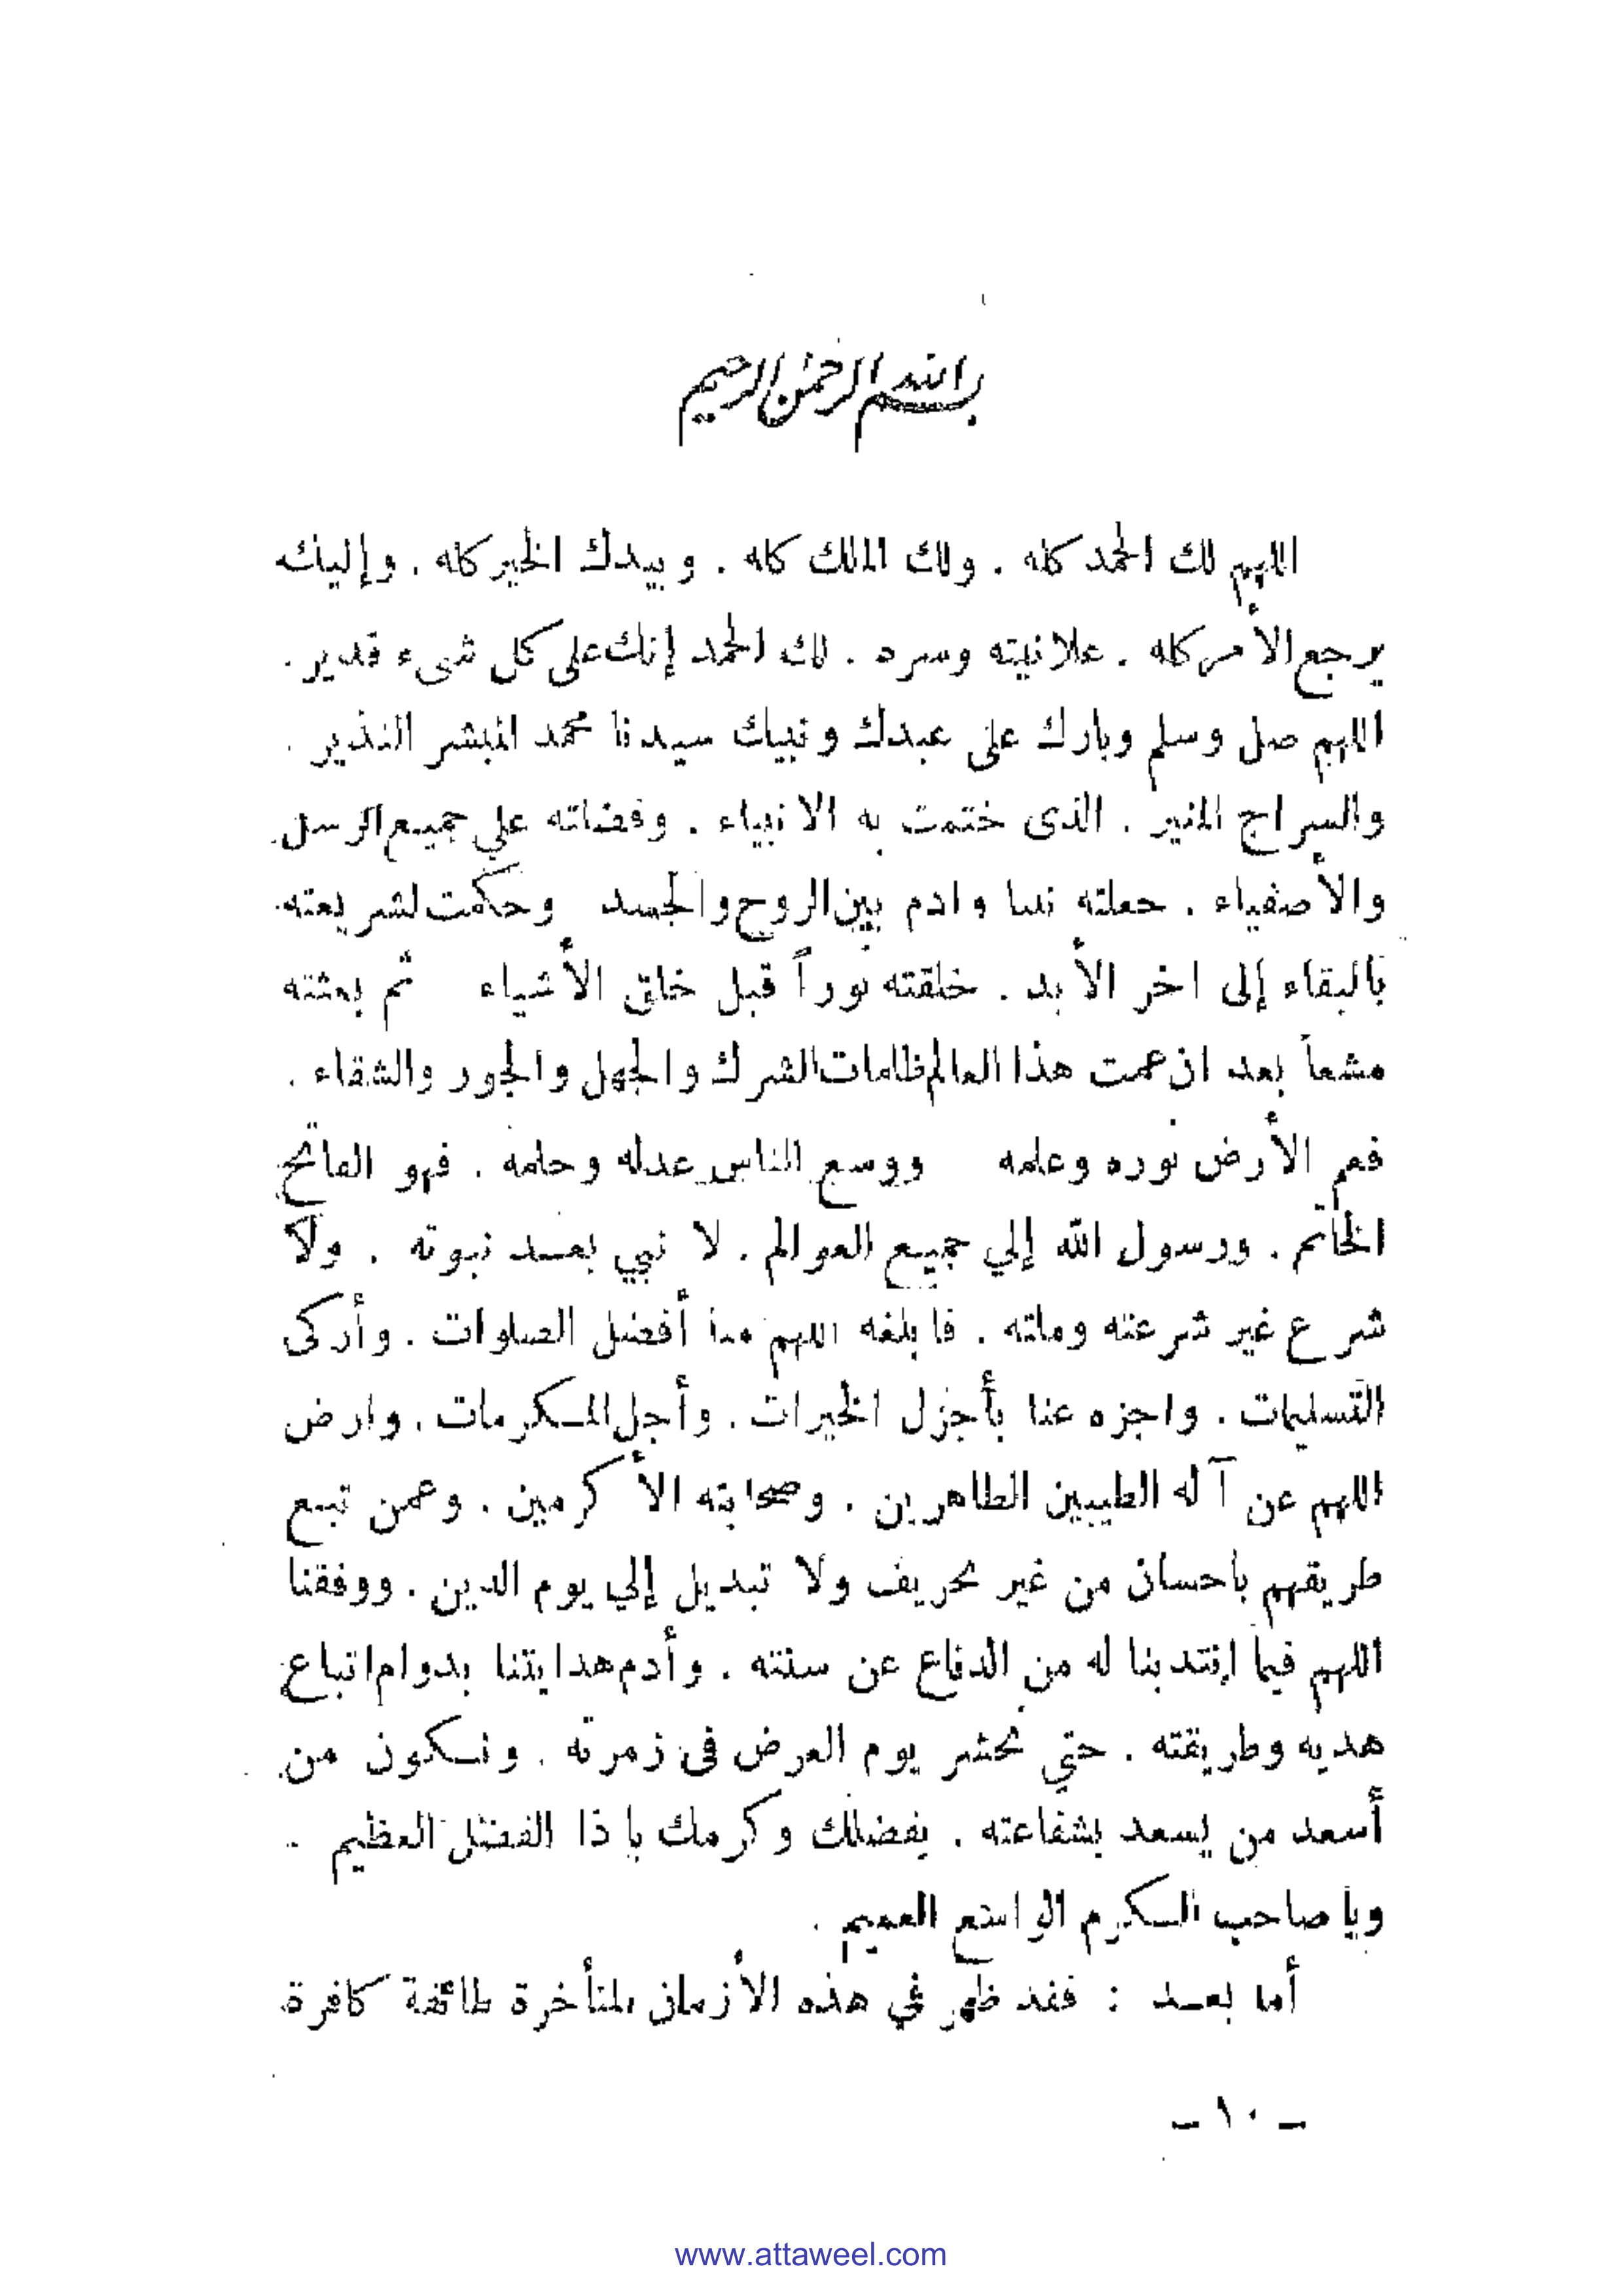 بسم الله الرحمن الرحيم
اللهم لك الحمد كله . ولك الملك كله . وبيدك الخير كله . وإليك
يرجع الأمر كله . علانيته وسره . لك الحمد إنك على كل شىء قدير .
اللهم صل وسلم وبارك على عبدك ونبيك سيدنا محمد المبشر النذير .
والسراج المنير . الذى ختمت به الانبياء . وفضلته علي جميع الرسل
والأصفياء . جعلته نبيا وادم بين الروح والجسد وحكمت لشريعته
بالبقاء إلى اخر الأبد . خلقته نوراً قبل خلق الأشياء ثم بعثته
مشعاً بعد ان عمت هذا العالم ظلمات الشرك والجهل والجور والشقاء .
فعم الأرض نوره وعلمه ووسع الناس عدله وحلمه . فهو الفاتح
الخاتم . ورسول الله إلي جميع العوالم . لا نبي بعد نبوته . ولا
شرع غير شرعته وملته . فابلغه اللهم منا أفضل الصلوات . وأزكى
التسليمات . واجزه عنا بأجزل الخيرات . وأجل المكرمات . وارض
اللهم عن آله الطيبين الطاهرين . وصحابته الأكرمين . وعمن تبع
طريقهم باحسان من غير تحريف ولا تبديل إلي يوم الدين . ووفقنا
اللهم فيما إنتدبنا له من الدفاع عن سنته . وأدم هدايتنا بدوام اتباع
هديه وطريقته . حتي نحشر يوم العرض فى زمرته . ونكون من
أسعد من يسعد بشفاعته . بفضلك وكرمك يا ذا الفضل العظيم .
ويا صاحب الكرم الواسع العميم .
أما بعد : فقد ظهر في هذه الأزمان المتأخرة طائفة كافرة
- ١٠ -
www.attaweel.com